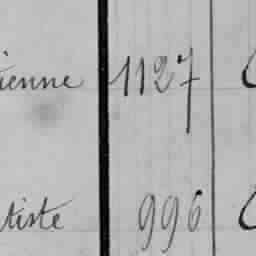 ienne 1127
tiste 996